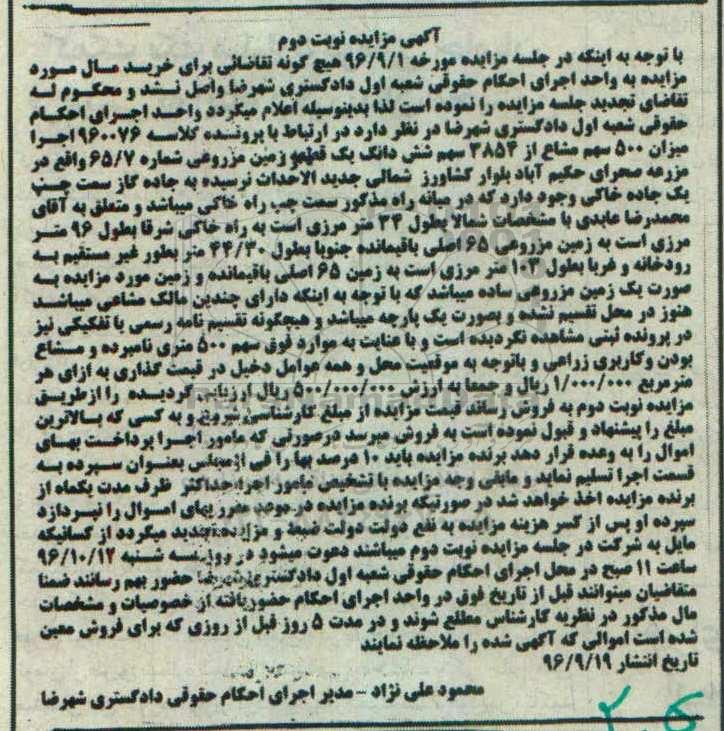 آگهی مزایده نوبت دوم
با توجه به اینکه در جلسه مزایده مورخه ۹۶/۹/۱ هیچ گونه تقاضائی برای خرید مال مورد
مزایده به واحد اجرای احکام حقوقی شعبه اول دادگستری شهرضا واصل نشد و محکوم له
تقاضای تجدید جلسه مزایده را نموده است لذا بدینوسیله اعلام میگردد واحد اجرای احکام
حقوقی شعبه اول دادگستری شهرضا در نظر دارد در ارتباط با پرونده کلاسه ۹۶۰۰۷۶ اجرا
میزان ۵۰۰ سهم مشاع از ۳۸۵۴ سهم شش دانگ یک قطعه زمین مزروعی شماره ۶۵/۷ واقع در
مزرعه صحرای حکیم آباد بلوار کشاورز شمالی جدید الاحداث نرسیده به جاده گاز سمت چپ
یک جاده خاکی وجود دارد که در میانه راه مذکور سمت چپ راه خاکی میباشد و متعلق به آقای
محمدرضا عابدی با مشخصات شمالا بطول ۳۴ متر مرزی است به راه خاکی شرقا بطول ۹۶ متر
مرزی است به زمین مزروعی ۶۵ اصلی باقیمانده جنوبا بطول ۴۴/۳۰ متر بطور غیر مستقیم به
رودخانه و غربا بطول ۱۰۳ متر مرزی است به زمین ۶۵ اصلی باقیمانده و زمین مورد مزایده به
صورت یک زمین مزروعی ساده میباشد که با توجه به اینکه دارای چندین مالک مشاعی میباشد
هنوز در محل تقسیم نشده و بصورت یک پارچه میباشد و هیچگونه تقسیم نامه رسمی یا تفکیکی نیز
در پرونده ثبتی مشاهده نگردیده است و با عنایت به موارد فوق سهم ۵۰۰ متری نامبرده و مشاع
بودن وکاربری زراعی و باتوجه به موقعیت محل و همه عوامل دخیل در قیمت گذاری به ازای هر
مترمربع ۱/۰۰۰/۰۰۰ ریال و جمعا به ارزش ۵۰۰/۰۰۰/۰۰۰ ریال ارزیابی گردیده را ازطریق
مزایده نوبت دوم به فروش رساند قیمت مزایده از مبلغ کارشناسی شروع و به کسی که بالاترین
مبلغ را پیشنهاد و قبول نموده است به فروش میرسد درصورتی که مامور اجرا پرداخت بهای
اموال را به وعده قرار دهد برنده مزایده باید ۱۰ درصد بها را فی المجلس بعنوان سپرده به
قسمت اجرا تسلیم نماید و مابقی وجه مزایده با تشخیص مامور اجرا حداکثر ظرف مدت یکماه از
برنده مزایده اخذ خواهد شد در صورتیکه برنده مزایده در موعد مقرر بهای اموال را نپردازد
سپرده او پس از کسر هزینه مزایده به نفع دولت دولت ضبط و مزایده تجدید میگردد از کسانیکه
مایل به شرکت در جلسه مزایده نوبت دوم میباشند دعوت میشود در روز سه شنبه ۹۶/۱۰/۱۲
ساعت ۱۱ صبح در محل اجرای احکام حقوقی شعبه اول دادگستری شهرضا حضور بهم رسانند ضمنا
متقاضیان میتوانند قبل از تاریخ فوق در واحد اجرای احکام حضوریافته از خصوصیات و مشخصات
مال مذکور در نظریه کارشناس مطلع شوند و در مدت ۵ روز قبل از روزی که برای فروش معین
شده است اموالی که آگهی شده را ملاحظه نمایند
تاریخ انتشار ۹۶/۹/۱۹
محمود علی نژاد - مدیر اجرای احکام حقوقی دادگستری شهرضا